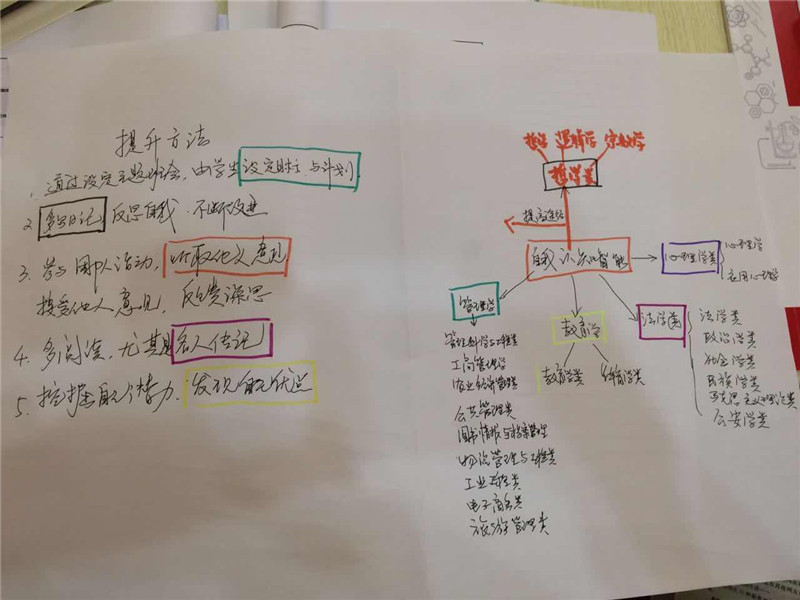 提升方法
1. 通过设定主题班会，由学生设定目标与计划
2 多写日记 反思自我 不断改进
3. 参与团队活动，听取他人意见
接受他人意见，反馈深思
4. 多阅读，尤其是名人传记
5. 挖掘自个潜力，发现自我优点
哲学 逻辑学 宗教学
哲学类
提高途径
自我认知智能
心理学类
心理学
应用心理学
管理学
教育学
法学类
管理科学与工程类
工商管理学
农业经济管理
公共管理类
图书情报与档案管理
物流管理与工程类
工业工程类
电子商务类
旅游管理类
教育学类
体育学类
法学类
政治学类
社会学类
民族学类
马克思主义理论类
公安学类